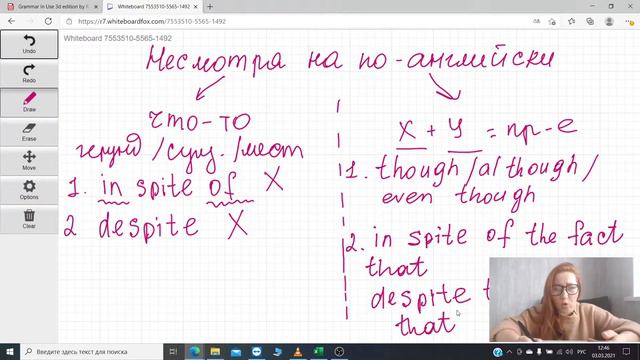 Grammar In Use 3d edition by
Whiteboard 7553510-5565-1492
https://r7.whiteboardfox.com/7553510-5565-1492
Whiteboard 7553510-5565-1492
Undo
Redo
Draw
Erase
Move
Options
Clear
Несмотря на по-английски
что-то
герунд/сущ./мест
1. in spite of X
2 despite X
X + У = пр-е
1. though/although/
even though
2. in spite of the fact
that
despite
that
Введите здесь текст для поиска
РУС
12:46
03.03.2021